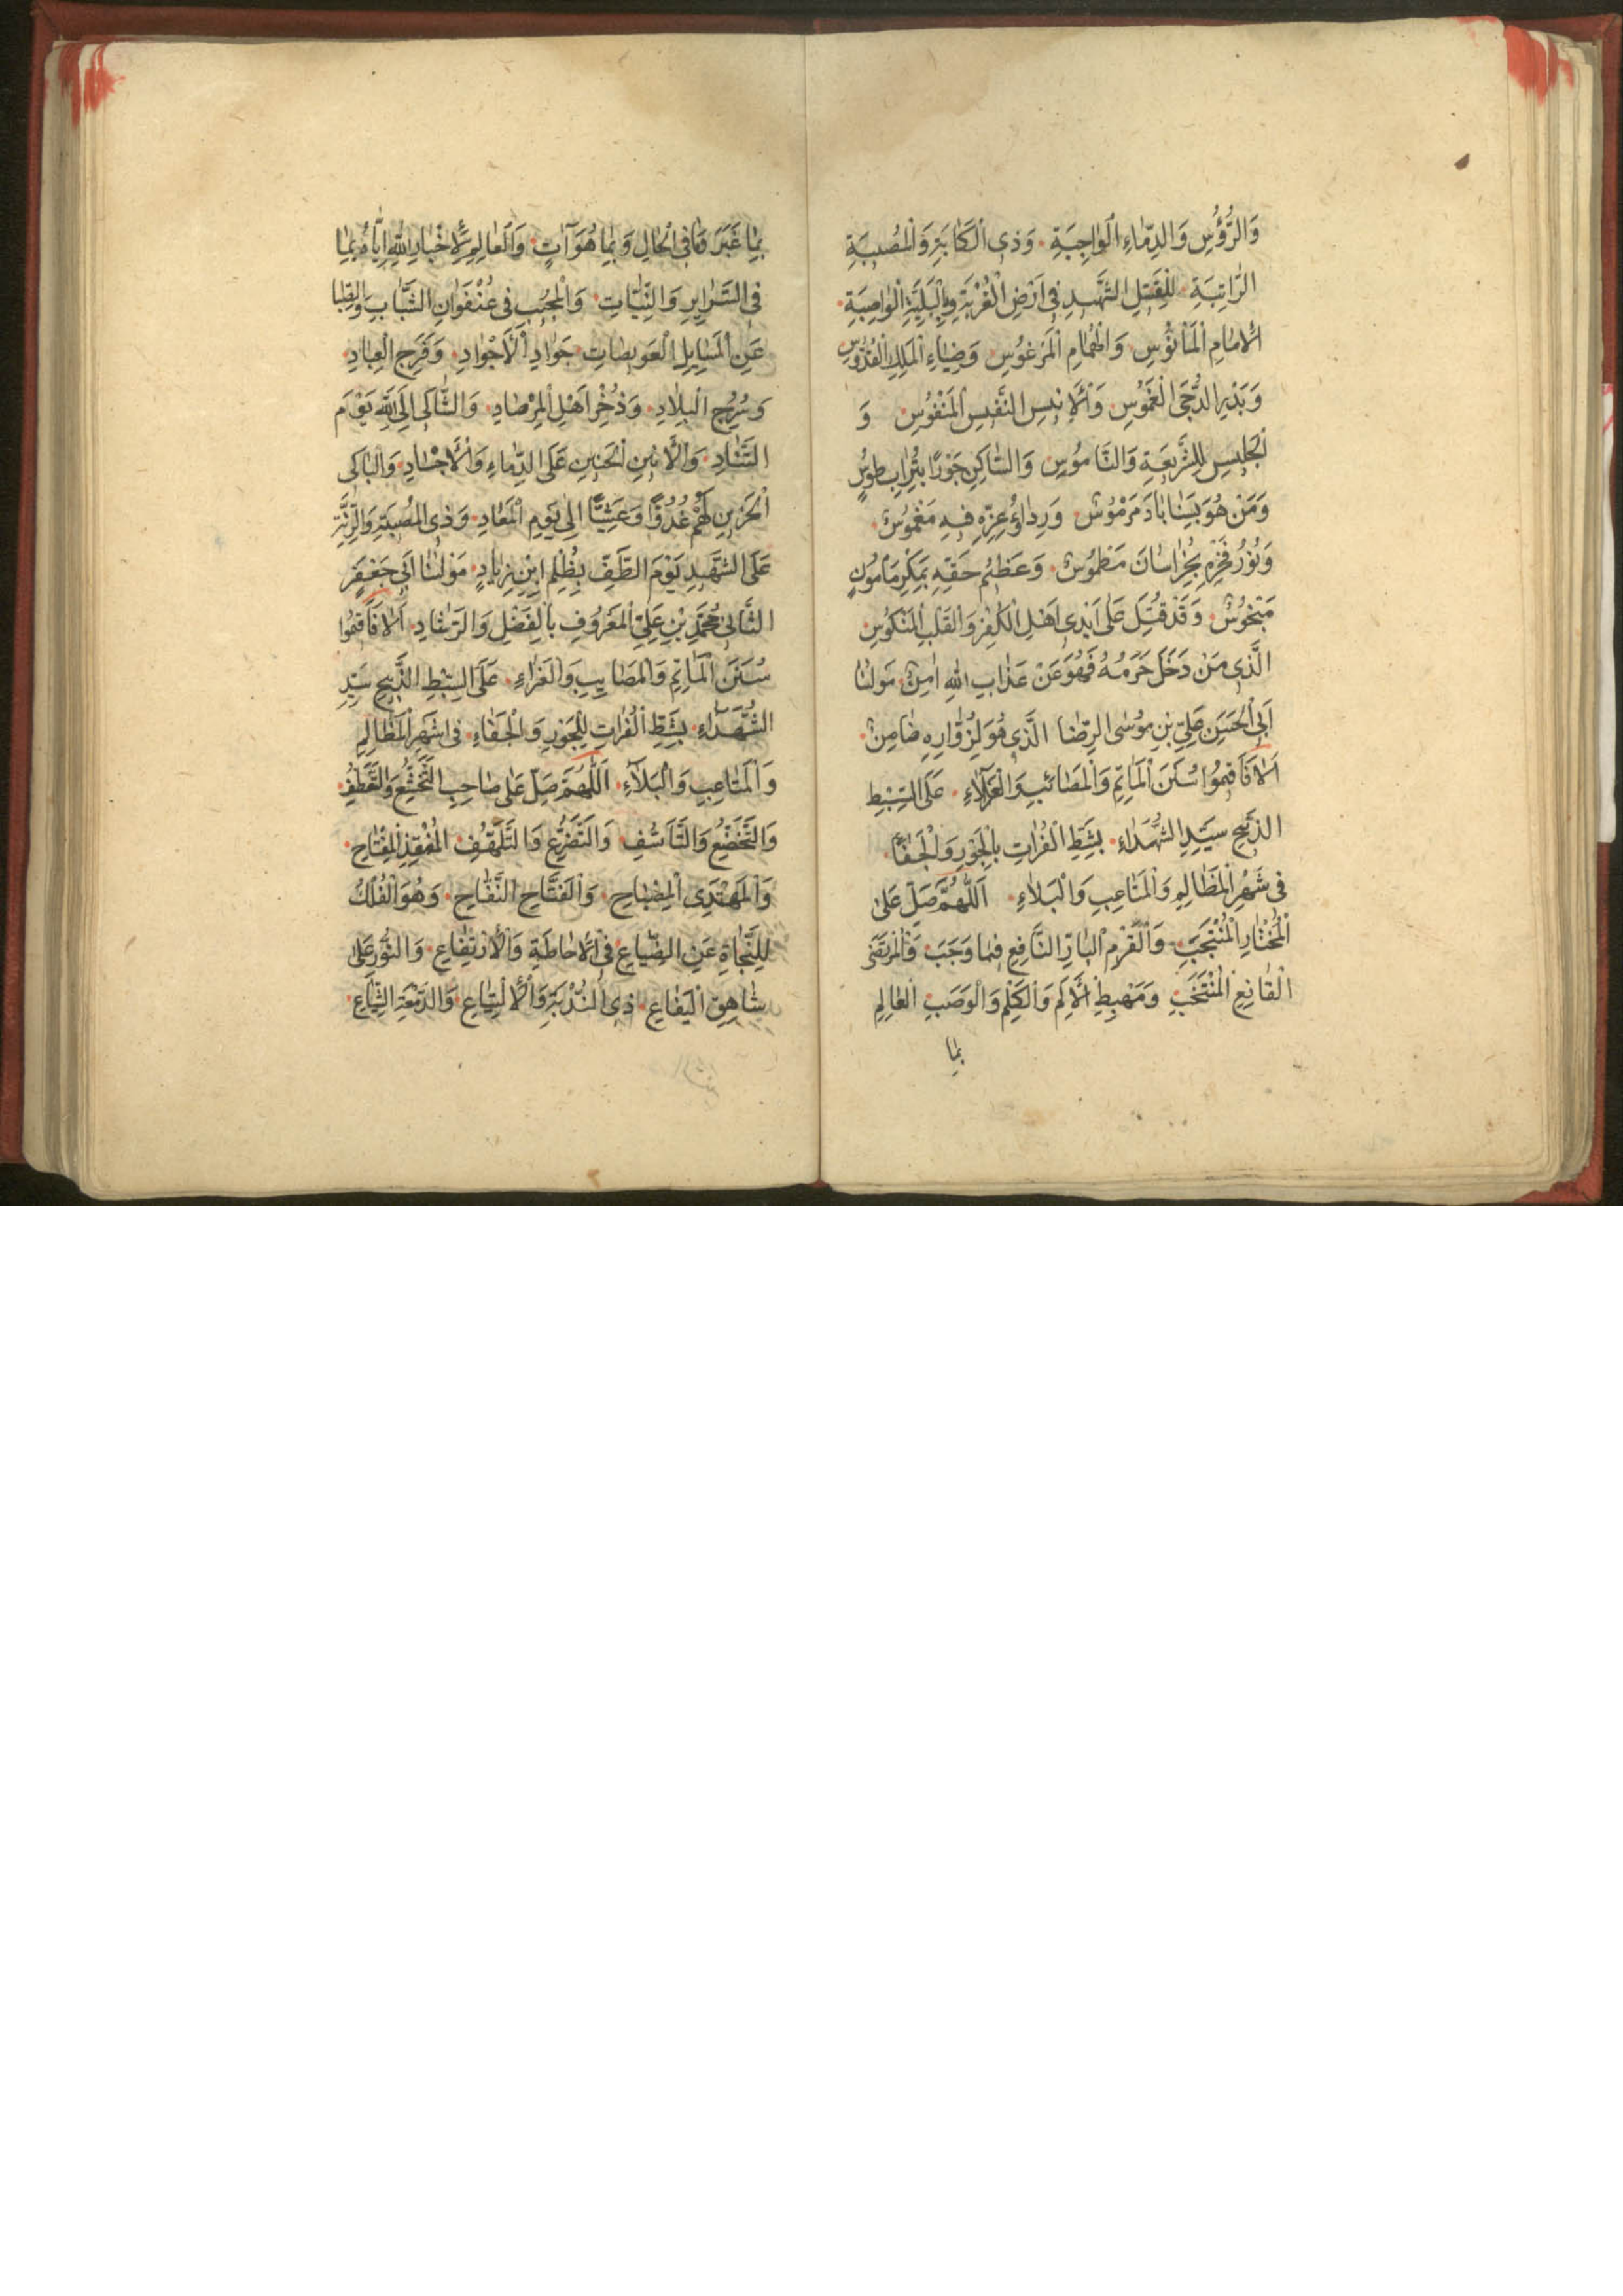 وَالرُّؤُسِ وَالدِّمٰاءِ الْوٰاجِبَةِ وَذِى الْكَابَةِ وَالْمُصيبَةِ
الرّٰاتِبَةِ لِلْقَتيلِ الشَّهيدِ فِى اَرْضِ الْغُرْبَةِ وَالْبَلِيَّةِ الْوٰاصِبَةِ
الْاِمٰامِ الْمَأْنُوسِ وَالْهُمٰامِ الْمَرْغُوسِ وَضِيٰاءِ الْمَلِكِ الْقُدُّوسِ
وَبَدْرِ الدُّجَى الْغَمُوسِ وَالْاَنيسِ النَّفيسِ الْمَنْفُوسِ وَ
الْجَليسِ لِلشَّريعَةِ وَالنّٰامُوسِ وَالسّٰاكِنِ جَوْرًا بِتُرٰابِ طُوسٍ
وَمَنْ هُوَ بِسَنٰابٰادَ مَرْمُوسٌ وَرِدٰاؤُ عِزِّهِ فيهِ مَغْمُوسٌ
وَنُورُ فَخْرِهِ بِخُرٰاسٰانَ مَطْمُوسٌ وَعَظيمُ حَقِّهِ بِمَكْرِ مَامُونٍ
مَبْخُوسٌ وَقَدْ قُتِلَ عَلىٰ اَيْدِى اَهْلِ الْكُفْرِ وَالْقَلْبِ الْمَنْكُوسِ
الَّذى مَنْ دَخَلَ حَرَمَهُ فَهُوَ عَنْ عَذٰابِ اللّٰهِ اٰمِنٌ مَوْلٰنٰا
اَبِى الْحَسَنِ عَلِىِّ بْنِ مُوسَى الرِّضٰا الَّذى هُوَ لِزُوّٰارِهِ ضٰامِنٌ
اَلٰا فَاَقيمُوا سُنَنَ الْمَاٰتِمِ وَالْمَصٰائِبِ وَالْعَزٰاءِ عَلَى السِّبْطِ
الذَّبيحِ سَيِّدِ الشُّهَدٰاءِ بِشَطِّ الْفُرٰاتِ بِالْجَوْرِ وَالْجَفٰاءِ
فى شَهْرِ الْمَظٰالِمِ وَالْمَتٰاعِبِ وَالْبَلٰاءِ اَللّٰهُمَّ صَلِّ عَلىٰ
الْمُخْتٰارِ الْمُنْتَجَبِ وَالْقَرْمِ الْبٰارِّ النّٰافِعِ فيمٰا وَجَبَ وَالْمُرْتَضَى
الْقٰانِعِ الْمُنْتَخَبِ وَمَهْبِطِ الْاَلَمِ وَالْكَلِمِ وَالْوَصَبِ الْعٰالِمِ
بِمٰا
بِمٰا غَبَرَ وَمٰا فِى الْحٰالِ وَبِمٰا هُوَ اٰتٍ وَالْعٰالِمِ لِاِخْبٰارِ اللّٰهِ اِيّٰاهُ بِمٰا
فِى السَّرٰايِرِ وَالنِّيّٰاتِ وَالْمُجيبِ فى عُنْفُوٰانِ الشَّبٰابِ وَالصِّبٰا
عَنِ الْمَسٰايِلِ الْعَويصٰاتِ جَوٰادِ الْاَجْوٰادِ وَفَرَجِ الْعِبٰادِ
وَسُرُجِ الْبِلٰادِ وَذُخْرِ اَهْلِ الْمِرْصٰادِ وَالشّٰاكى اِلَى اللّٰهِ يَوْمَ
التَّنٰادِ وَالْاَنينِ الْحَنينِ عَلَى الدِّمٰاءِ وَالْاَجْسٰادِ وَالْبٰاكى
الْحَزينِ لَهُمْ غُدُوًّا وَعَشِيًّا اِلىٰ يَوْمِ الْمَعٰادِ وَذِى الْمُصيبَةِ وَالرَّزِيَّةِ
عَلَى الشَّهيدِ يَوْمَ الطَّفِّ بِظُلْمِ ابْنِ زِيٰادٍ مَوْلٰنٰا اَبى جَعْفَرٍ
الثّٰانى مُحَمَّدِ بْنِ عَلِىٍّ الْمَعْرُوفِ بِالْفَضْلِ وَالرَّشٰادِ اَلٰا فَاَقيمُوا
سُنَنَ الْمَاٰتِمِ وَالْمَصٰايِبِ وَالْعَزٰاءِ عَلَى السِّبْطِ الذَّبيحِ سَيِّدِ
الشُّهَدٰاءِ بِشَطِّ الْفُرٰاتِ لِلْجَوْرِ وَالْجَفٰاءِ فى اشهر الْمَظٰالِمِ
وَالْمَتٰاعِبِ وَالْبَلٰاءِ اَللّٰهُمَّ صَلِّ عَلىٰ صٰاحِبِ التَّخَشُّعِ وَالتَّعَطُّفِ
وَالتَّخَضُّعِ وَالتَّاَسُّفِ وَالتَّضَرُّعِ وَالتَّلَهُّفِ الْمُنْقِذِ الْمِفْتٰاحِ
وَالْمُهْتَدِى الْمِصْبٰاحِ وَالْفَتّٰاحِ النَّفّٰاحِ وَهُوَ الْفُلْكُ
لِلنَّجٰاةِ عَنِ الضِّيٰاعِ فِى الْاِحٰاطَةِ وَالْاِرْتِفٰاعِ وَالنُّورِ عَلىٰ
شٰاهِقِ الْيَفٰاعِ ذِى النُّدْبَةِ وَالْاِلْتِيٰاعِ وَالدَّمْعَةِ